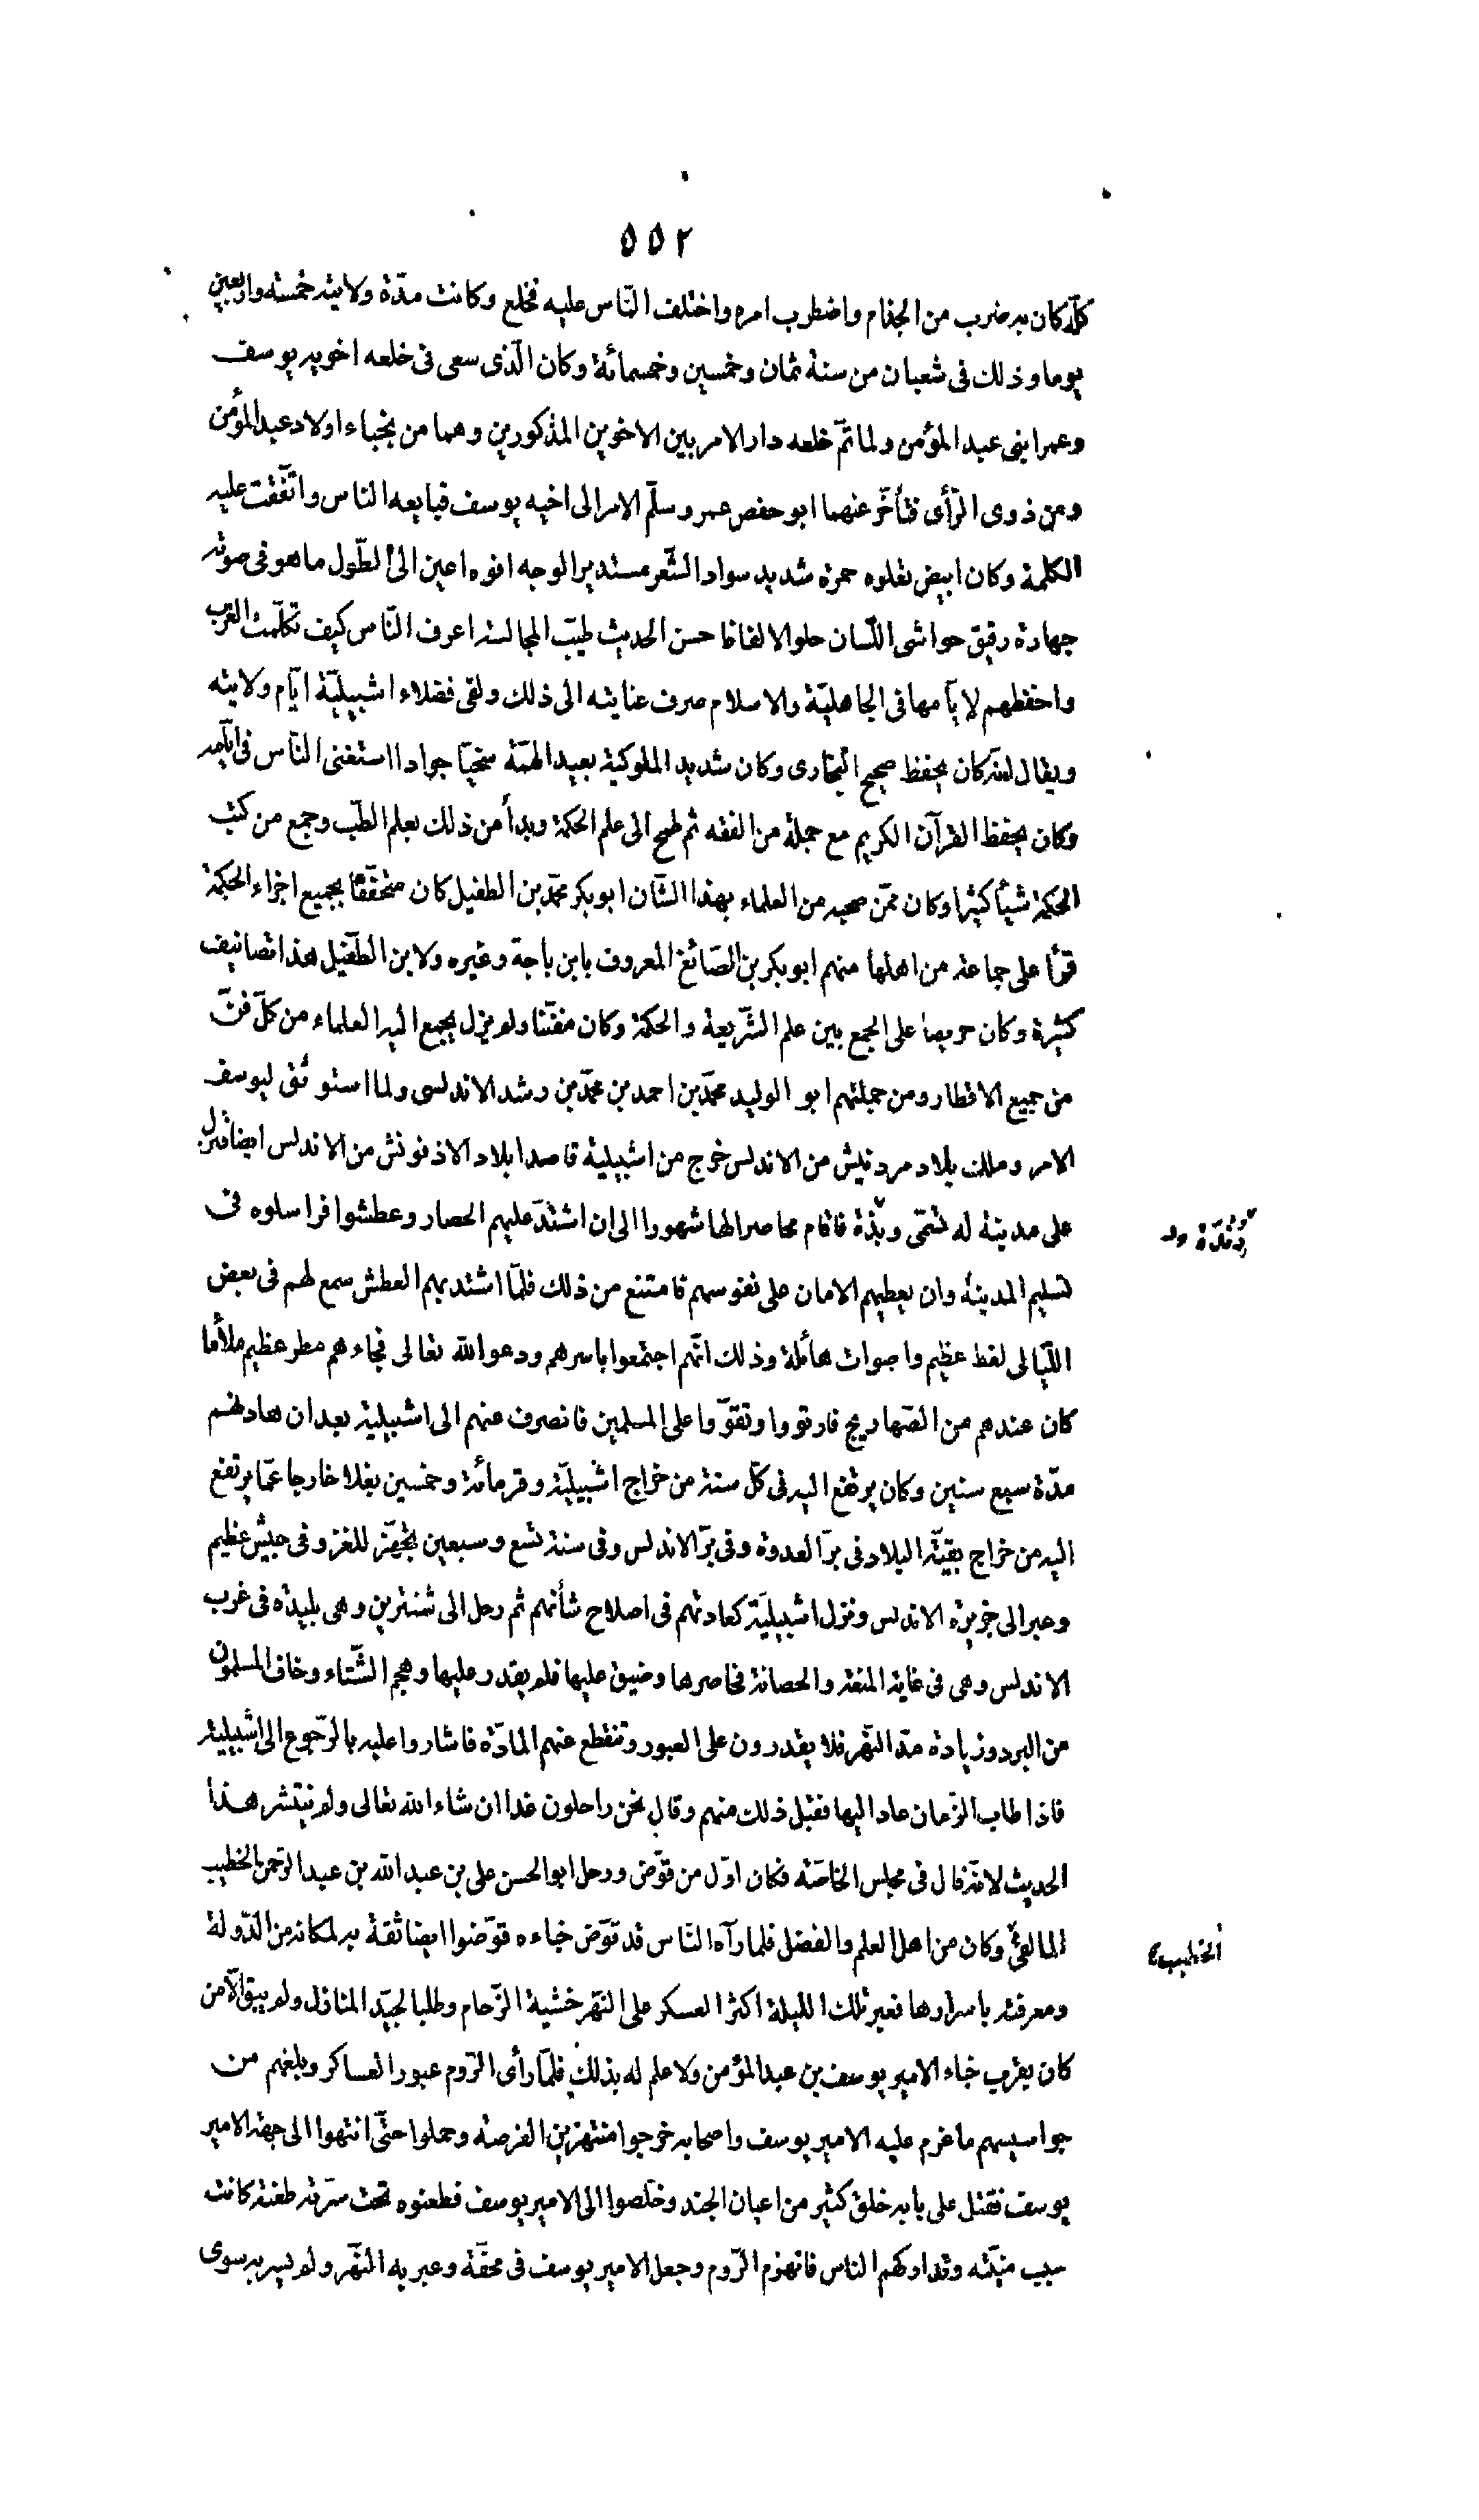 ٥٥٢
كلّه كان به ضرب من الجذام واضطرب امره واختلف النّاس عليه فخلع وكانت مدّة ولايته خمسة واربعين
يوما وذلك فى شعبان من سنة ثمان وخمسين وخمسمائة وكان الّذى سعى فى خلعه اخويه يوسف
وعمر ابنى عبد المؤمن ولما تمّ خلعه دار الامر بين الاخوين المذكورين وهما من نجباء اولاد عبد المؤمن
ومن ذوى الرّأى فتأخّر عنهما ابو حفص عمر وسلّم الامر الى اخيه يوسف فبايعه الناس واتّفقت عليه
الكلمة وكان ابيض تعلوه حمرة شديد سواد الشّعر مستدير الوجه افوه اعين الى الطّول ما هو فى صوته
جهارة رقيق حواشى اللّسان حلو الالفاظ حسن الحديث طيّب المجالسة اعرف النّاس كيف تكلّمت العرب
واحفظهم لايّامها فى الجاهليّة والاسلام صرف عنايته الى ذلك ولقى فضلاء اشبيليّة ايّام ولايته
ويقال انّه كان يحفظ صحيح البخارى وكان شديد الملوكية بعيد الهمّة سخيّا جوادا استغنى النّاس فى ايّامه
وكان يحفظ القرآن الكريم مع جملة من الفقه ثم طمح الى علم الحكمة وبدأ من ذلك بعلم الطّب وجمع من كتب
الحكمة شيأ كثيرا وكان ممّن صحبه من العلماء بهذا الشّان ابو بكر محمّد بن الطفيل كان متحقّقا بجميع اجزاء الحكمة
قرأ على جماعة من اهلها منهم ابو بكر بن الصّائغ المعروف بابن باجة وغيره ولابن الطّفيل هذا تصانيف
كثيرة وكان حريصا على الجمع بين علم الشّريعة والحكمة وكان مفنّنا ولم يزل يجمع اليه العلماء من كلّ فنّ
من جميع الاقطار ومن جملتهم ابو الوليد محمّد بن احمد بن محمّد بن رشد الاندلسى ولما استوثق ليوسف
الامر وملك بلاد مردنيش من الاندلس خرج من اشبيلية قاصدا بلاد الاذفونش من الاندلس ايضا فنزل
على مدينة له تسمّى وبّذة فاقام محاصرا لها شهورا الى ان اشتدّ عليهم الحصار وعطشوا فراسلوه فى
تسليم المدينة وان يعطيهم الامان على نفوسهم فامتنع من ذلك فلمّا اشتد بهم العطش سمع لهم فى بعض
اللّيالى لغط عظيم واصوات هائلة وذلك انّهم اجتمعوا باسرهم ودعوا الله تعالى فجاءهم مطر عظيم ملأ ما
كان عندهم من الصّهاريج فارتووا وتقوّوا على المسلمين فانصرف عنهم الى اشبيلية بعد ان هادنهم
مدّة سبع سنين وكان يرتفع اليه فى كلّ سنة من خراج اشبيليّة وقر مائة وخمسين بغلا خارجا عمّا يرتفع
اليه من خراج بقيّة البلاد فى برّ العدوة وفى برّ الاندلس وفى سنة تسع وسبعين تجهّز للغزو فى جيش عظيم
وعبر الى جزيرة الاندلس ونزل اشبيليّة كعادتهم فى اصلاح شأنهم ثم رحل الى شنترين وهى بليدة فى غرب
الاندلس وهى فى غاية المنعة والحصانة فحاصرها وضيق عليها فلم يقدر عليها وهجم الشّتاء وخاف المسلمون
من البرد وزيادة مدّ النّهر فلا يقدرون على العبور وتنقطع عنهم المادّة فاشاروا عليه بالرّجوع الى اشبيلية
فاذا طاب الزّمان عاد اليها فقبل ذلك منهم وقال نحن راحلون غدا ان شاء الله تعالى ولم ينتشر هذا
الحديث لانّه قال فى مجلس الخاصّة فكان اوّل من قوّض ورحل ابو الحسن على بن عبد الله بن عبد الرّحمن الخطيب
المالقىّ وكان من اهل العلم والفضل فلما رآه النّاس قد قوّض خباءه قوّضوا ايضا ثقة به لمكانه من الدّولة
ومعرفته باسرارها فعبر تلك الليلة اكثر العسكر على النّهر خشية الزّحام وطلبا لجيّد المنازل ولم يبق الّا من
كان بقرب خباء الامير يوسف بن عبد المؤمن ولا علم له بذلك فلمّا رأى الرّوم عبور العساكر وبلغهم من
جواسيسهم ما عزم عليه الامير يوسف واصحابه خرجوا منتهزين الفرصة وحملوا حتّى انتهوا الى جهة الامير
يوسف فقتل على بابه خلق كثير من اعيان الجند وخلّصوا الى الامير يوسف فطعنوه تحت سرّته طعنة كانت
سبب منيّته وتداركهم الناس فانهزم الرّوم وجعل الامير يوسف فى محفّة وعبر به النّهر ولم يسر به سوى
الخطيب